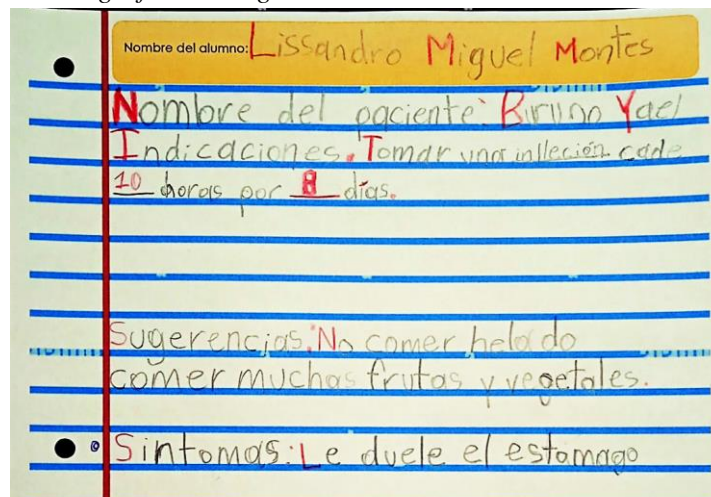 Nombre del alumno: Lissandro Miguel Montes
Nombre del paciente: Bruno Yael
Indicaciones. Tomar una inlleción cade
10 horas por 8 días.
Sugerencias: No comer helado
comer muchas frutas y vegetales.
Sintomas: Le duele el estamago